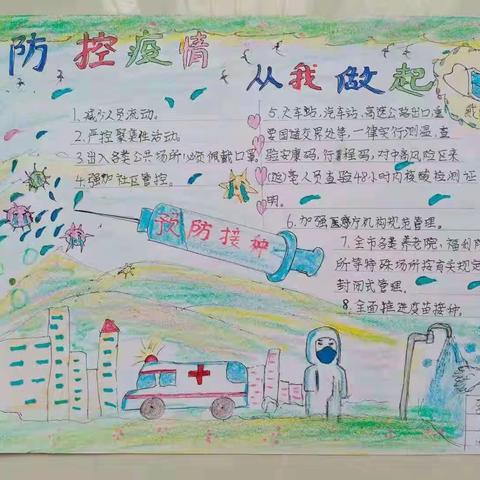 防控疫情
从我做起
1.减少人员流动。
2.严控聚集性活动。
3.出入各类公共场所必须佩戴口罩。
4.强加社区管控。
5.火车站,汽车站,高速公路出口,
里国道交界处等,一律实行测温,查
验安康码,行程码,对中高风险区来
人员查验48小时内核酸检测证
明。
6.加强医疗机构规范管理。
7.全市各类养老院,福利
所等特殊场所按有关规定
封闭式管理。
8.全面推进疫苗接种。
预防接种